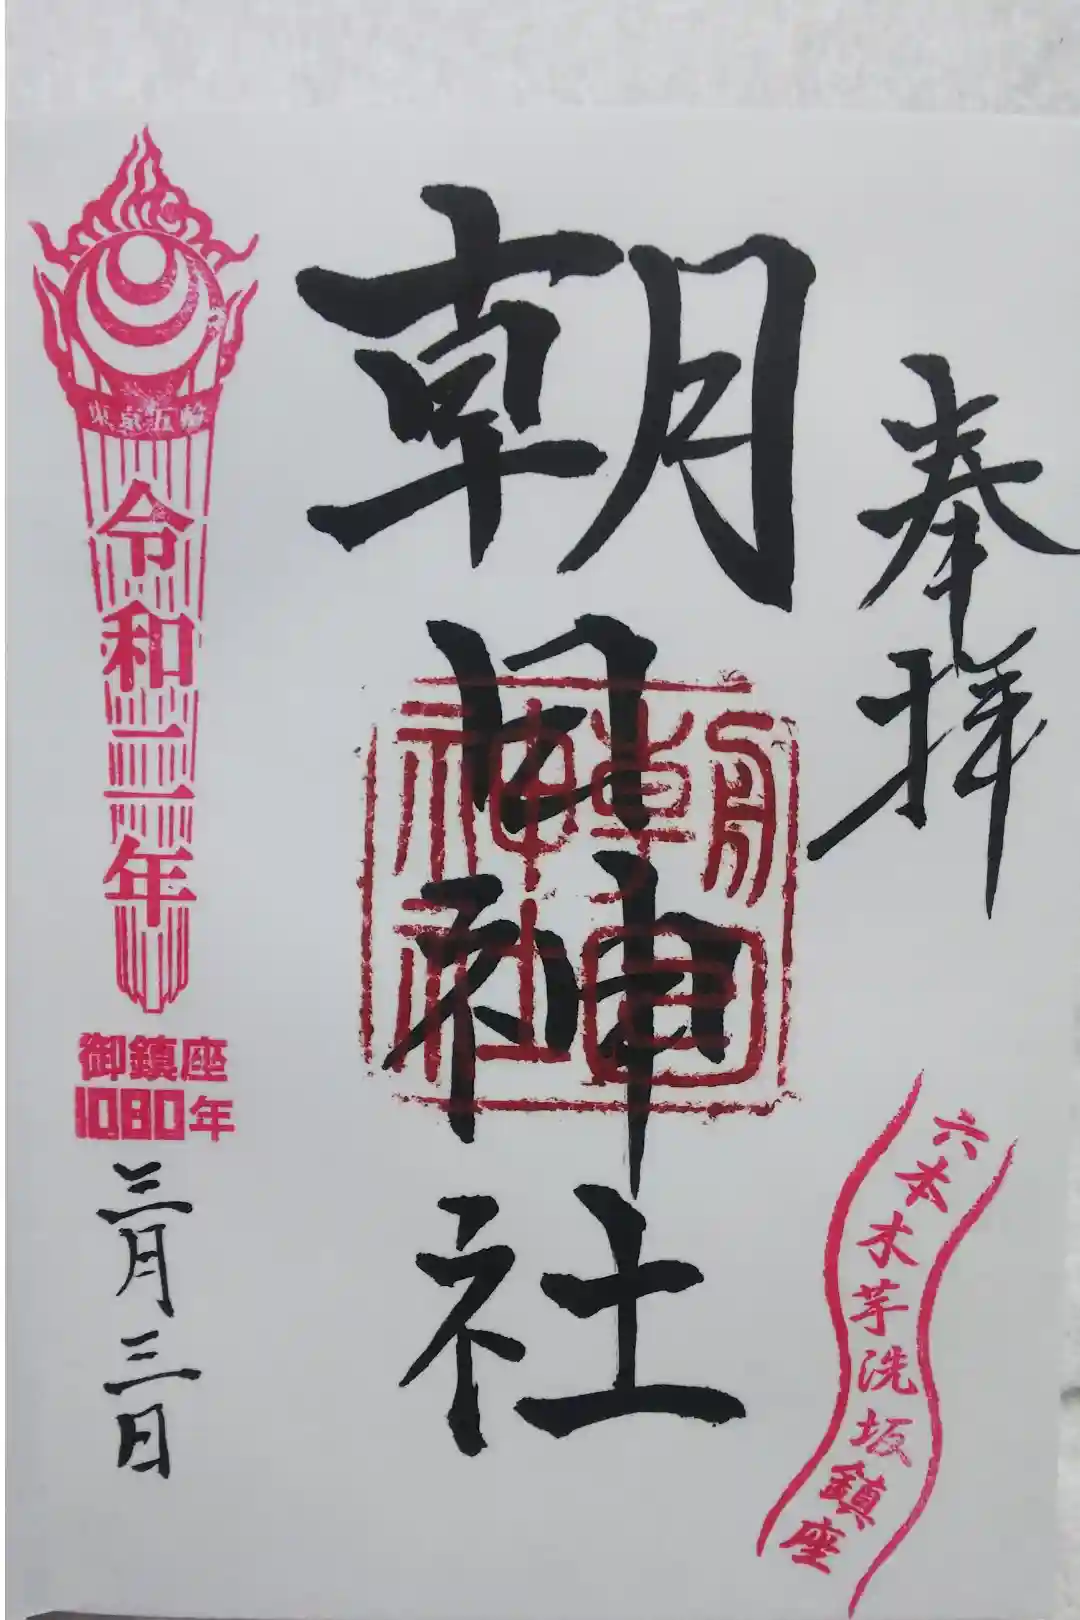 奉拝
六本木芋洗坂鎮座
朝日神社
朝日
神社
東京五輪
令和二年
御鎮座
1080年
三月三日